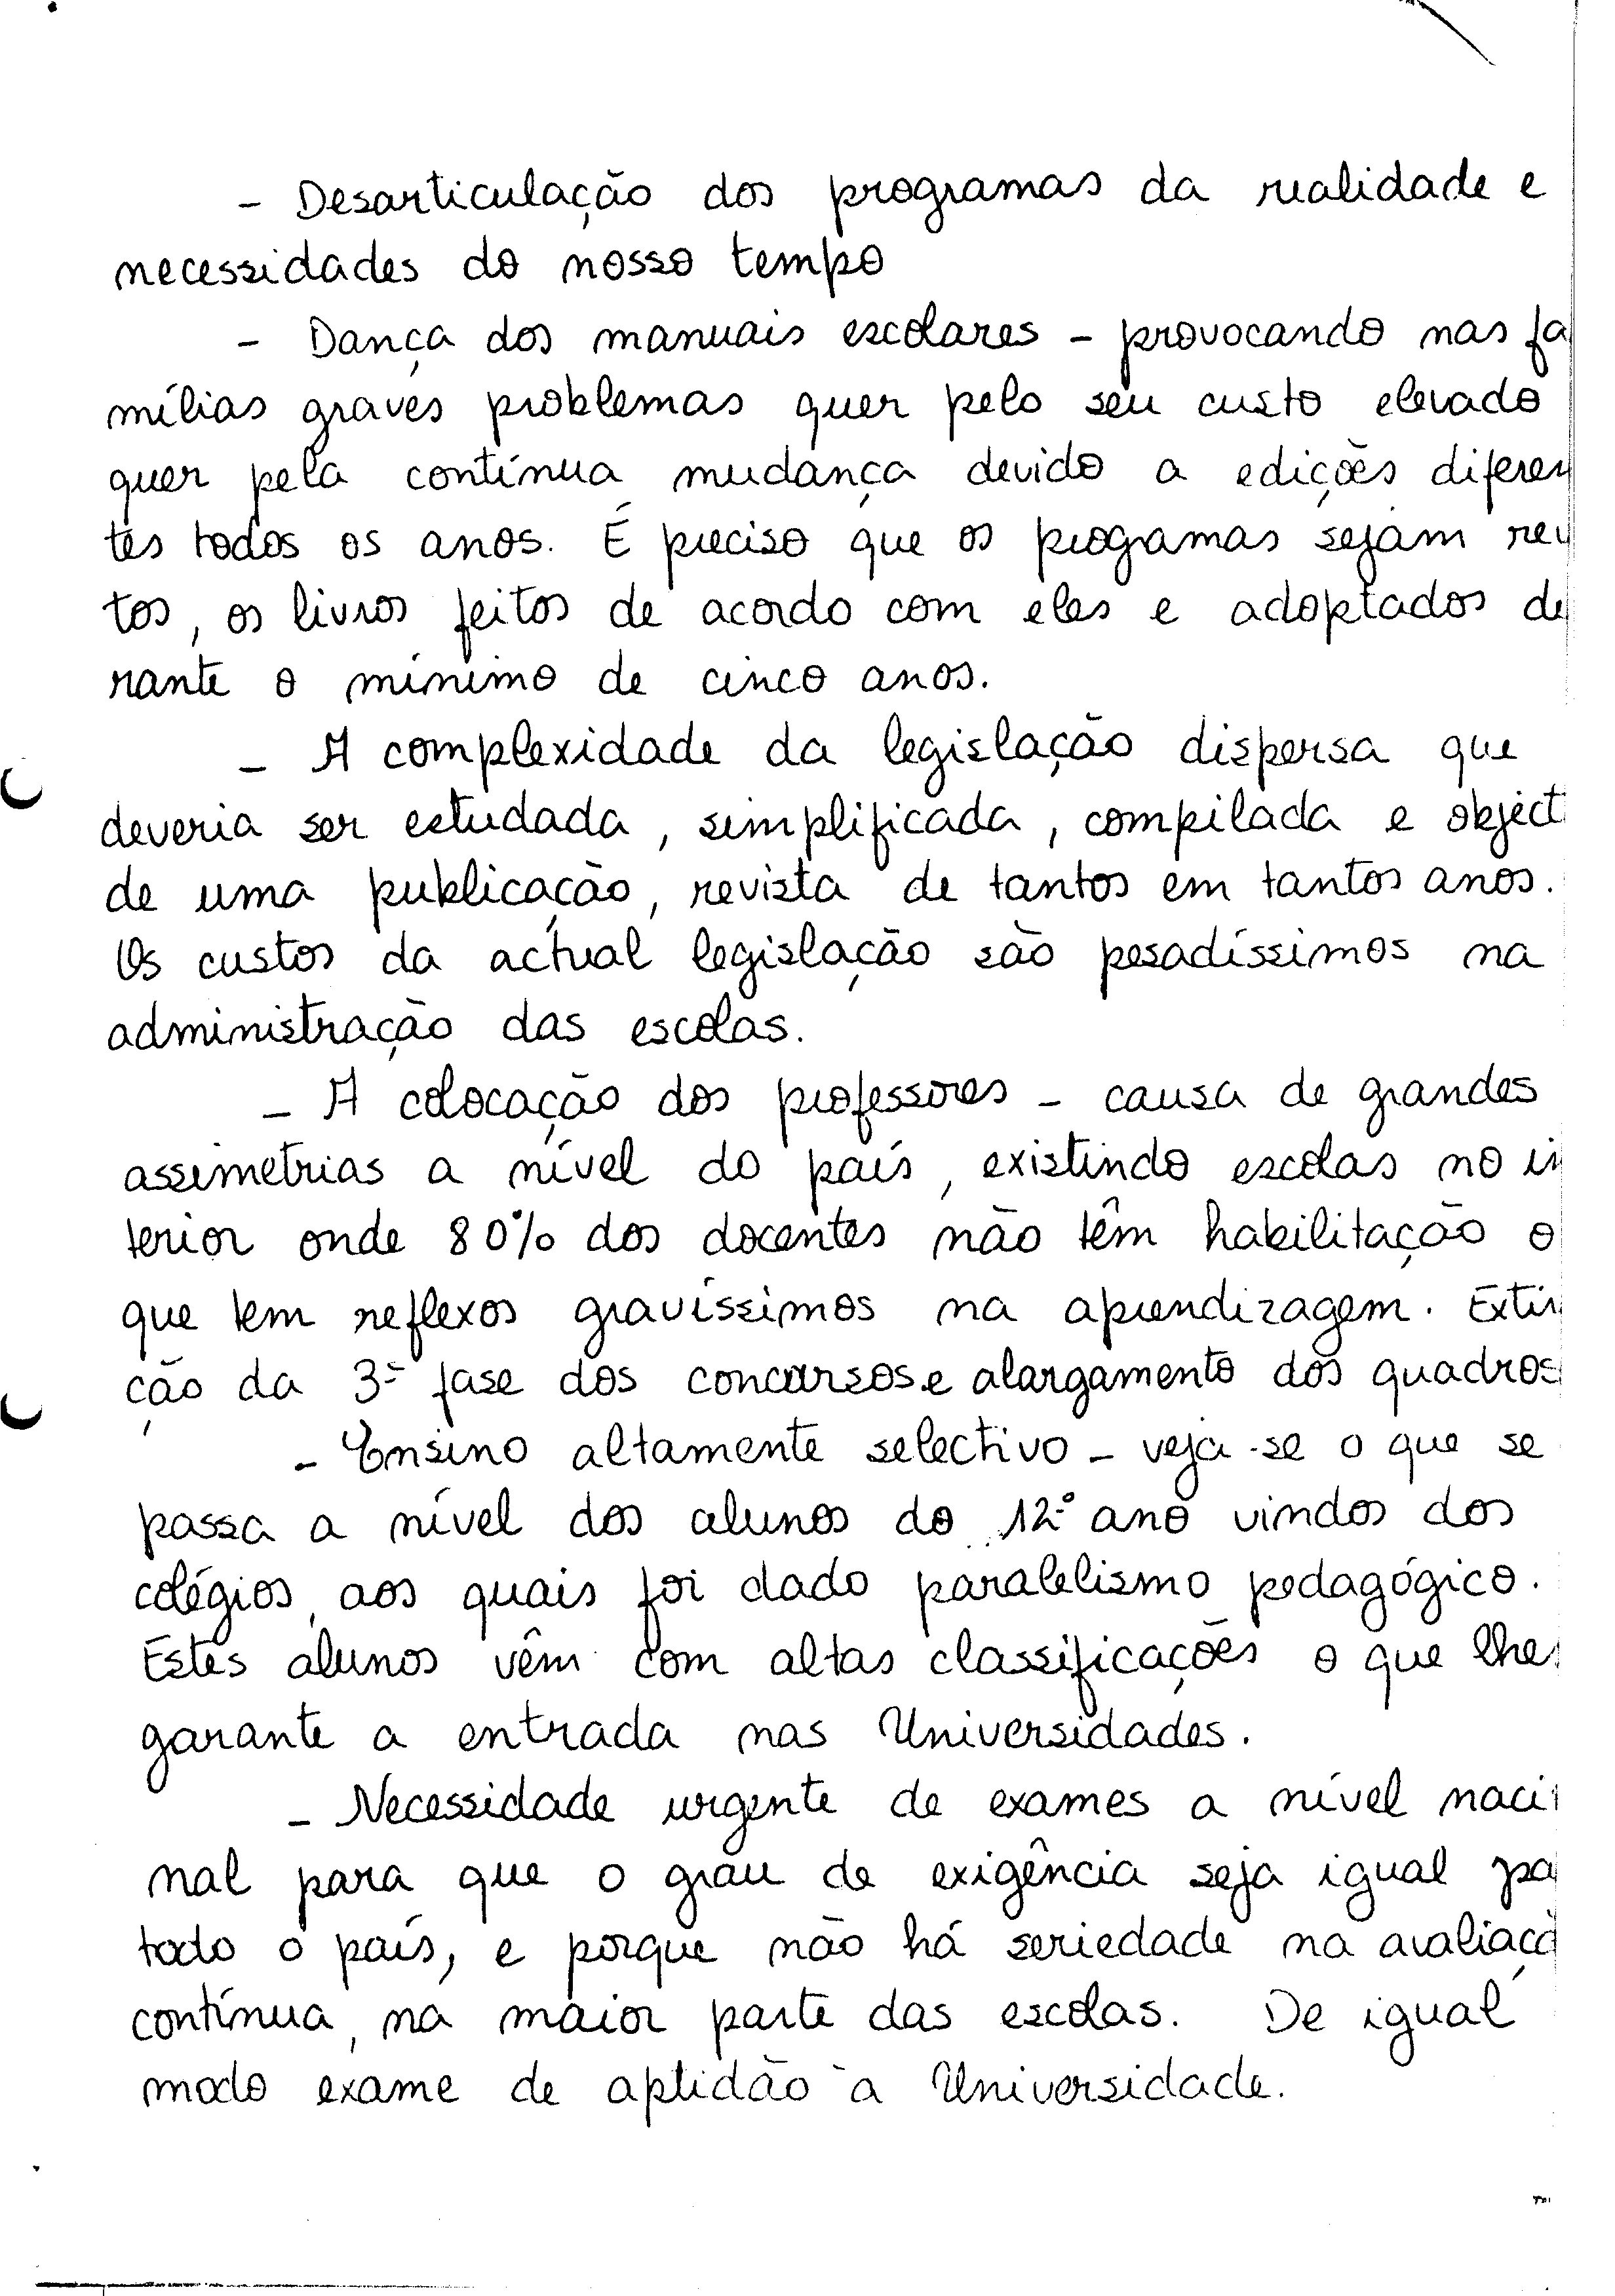 - Desarticulação dos programas da realidade e
necessidades do nosso tempo
- Dança dos manuais escolares - provocando nas fa
mílias graves problemas quer pelo seu custo elevado
quer pela contínua mudança devido a edições diferen
tes todos os anos. É preciso que os programas sejam rev
tos, os livros feitos de acordo com eles e adoptados du
rante o mínimo de cinco anos.
- A complexidade da legislação dispersa que
deveria ser estudada, simplificada, compilada e object
de uma publicação, revista de tantos em tantos anos.
Os custos da actual legislação são pesadíssimos na
administração das escolas.
- A colocação dos professores - causa de grandes
assimetrias a nível do país, existindo escolas no in
terior onde 80% dos docentes não têm habilitação o
que tem reflexos gravíssimos na aprendizagem. Extin
ção da 3ª fase dos concursos e alargamento dos quadros
- Ensino altamente selectivo - veja-se o que se
passa a nível dos alunos do 12º ano vindos dos
colégios, aos quais foi dado paralelismo pedagógico.
Estes alunos vêm com altas classificações o que lhes
garante a entrada nas Universidades.
- Necessidade urgente de exames a nível naci
nal para que o grau de exigência seja igual pa
todo o país, e porque não há seriedade na avaliaçã
contínua, na maior parte das escolas. De igual
modo exame de aptidão à Universidade.